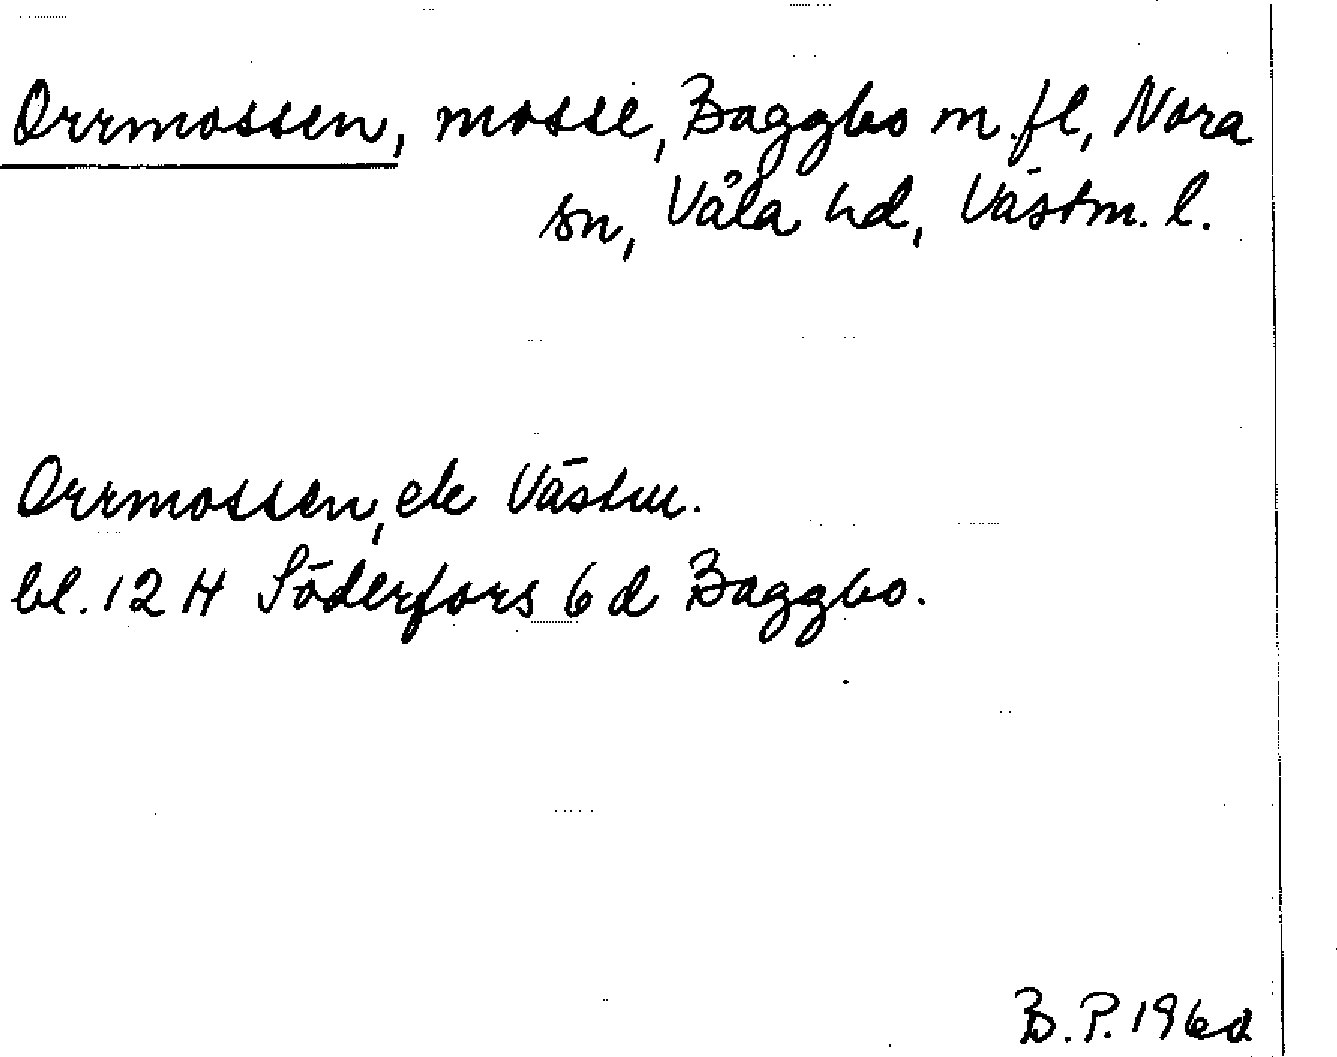 Orrmossen, mosse, Baggbo m fl, Nora
sn, Våla hd, Västm. l.
Orrmossen, ek Västm.
bl. 12 H Söderfors 6 d Baggbo.
B. P. 196